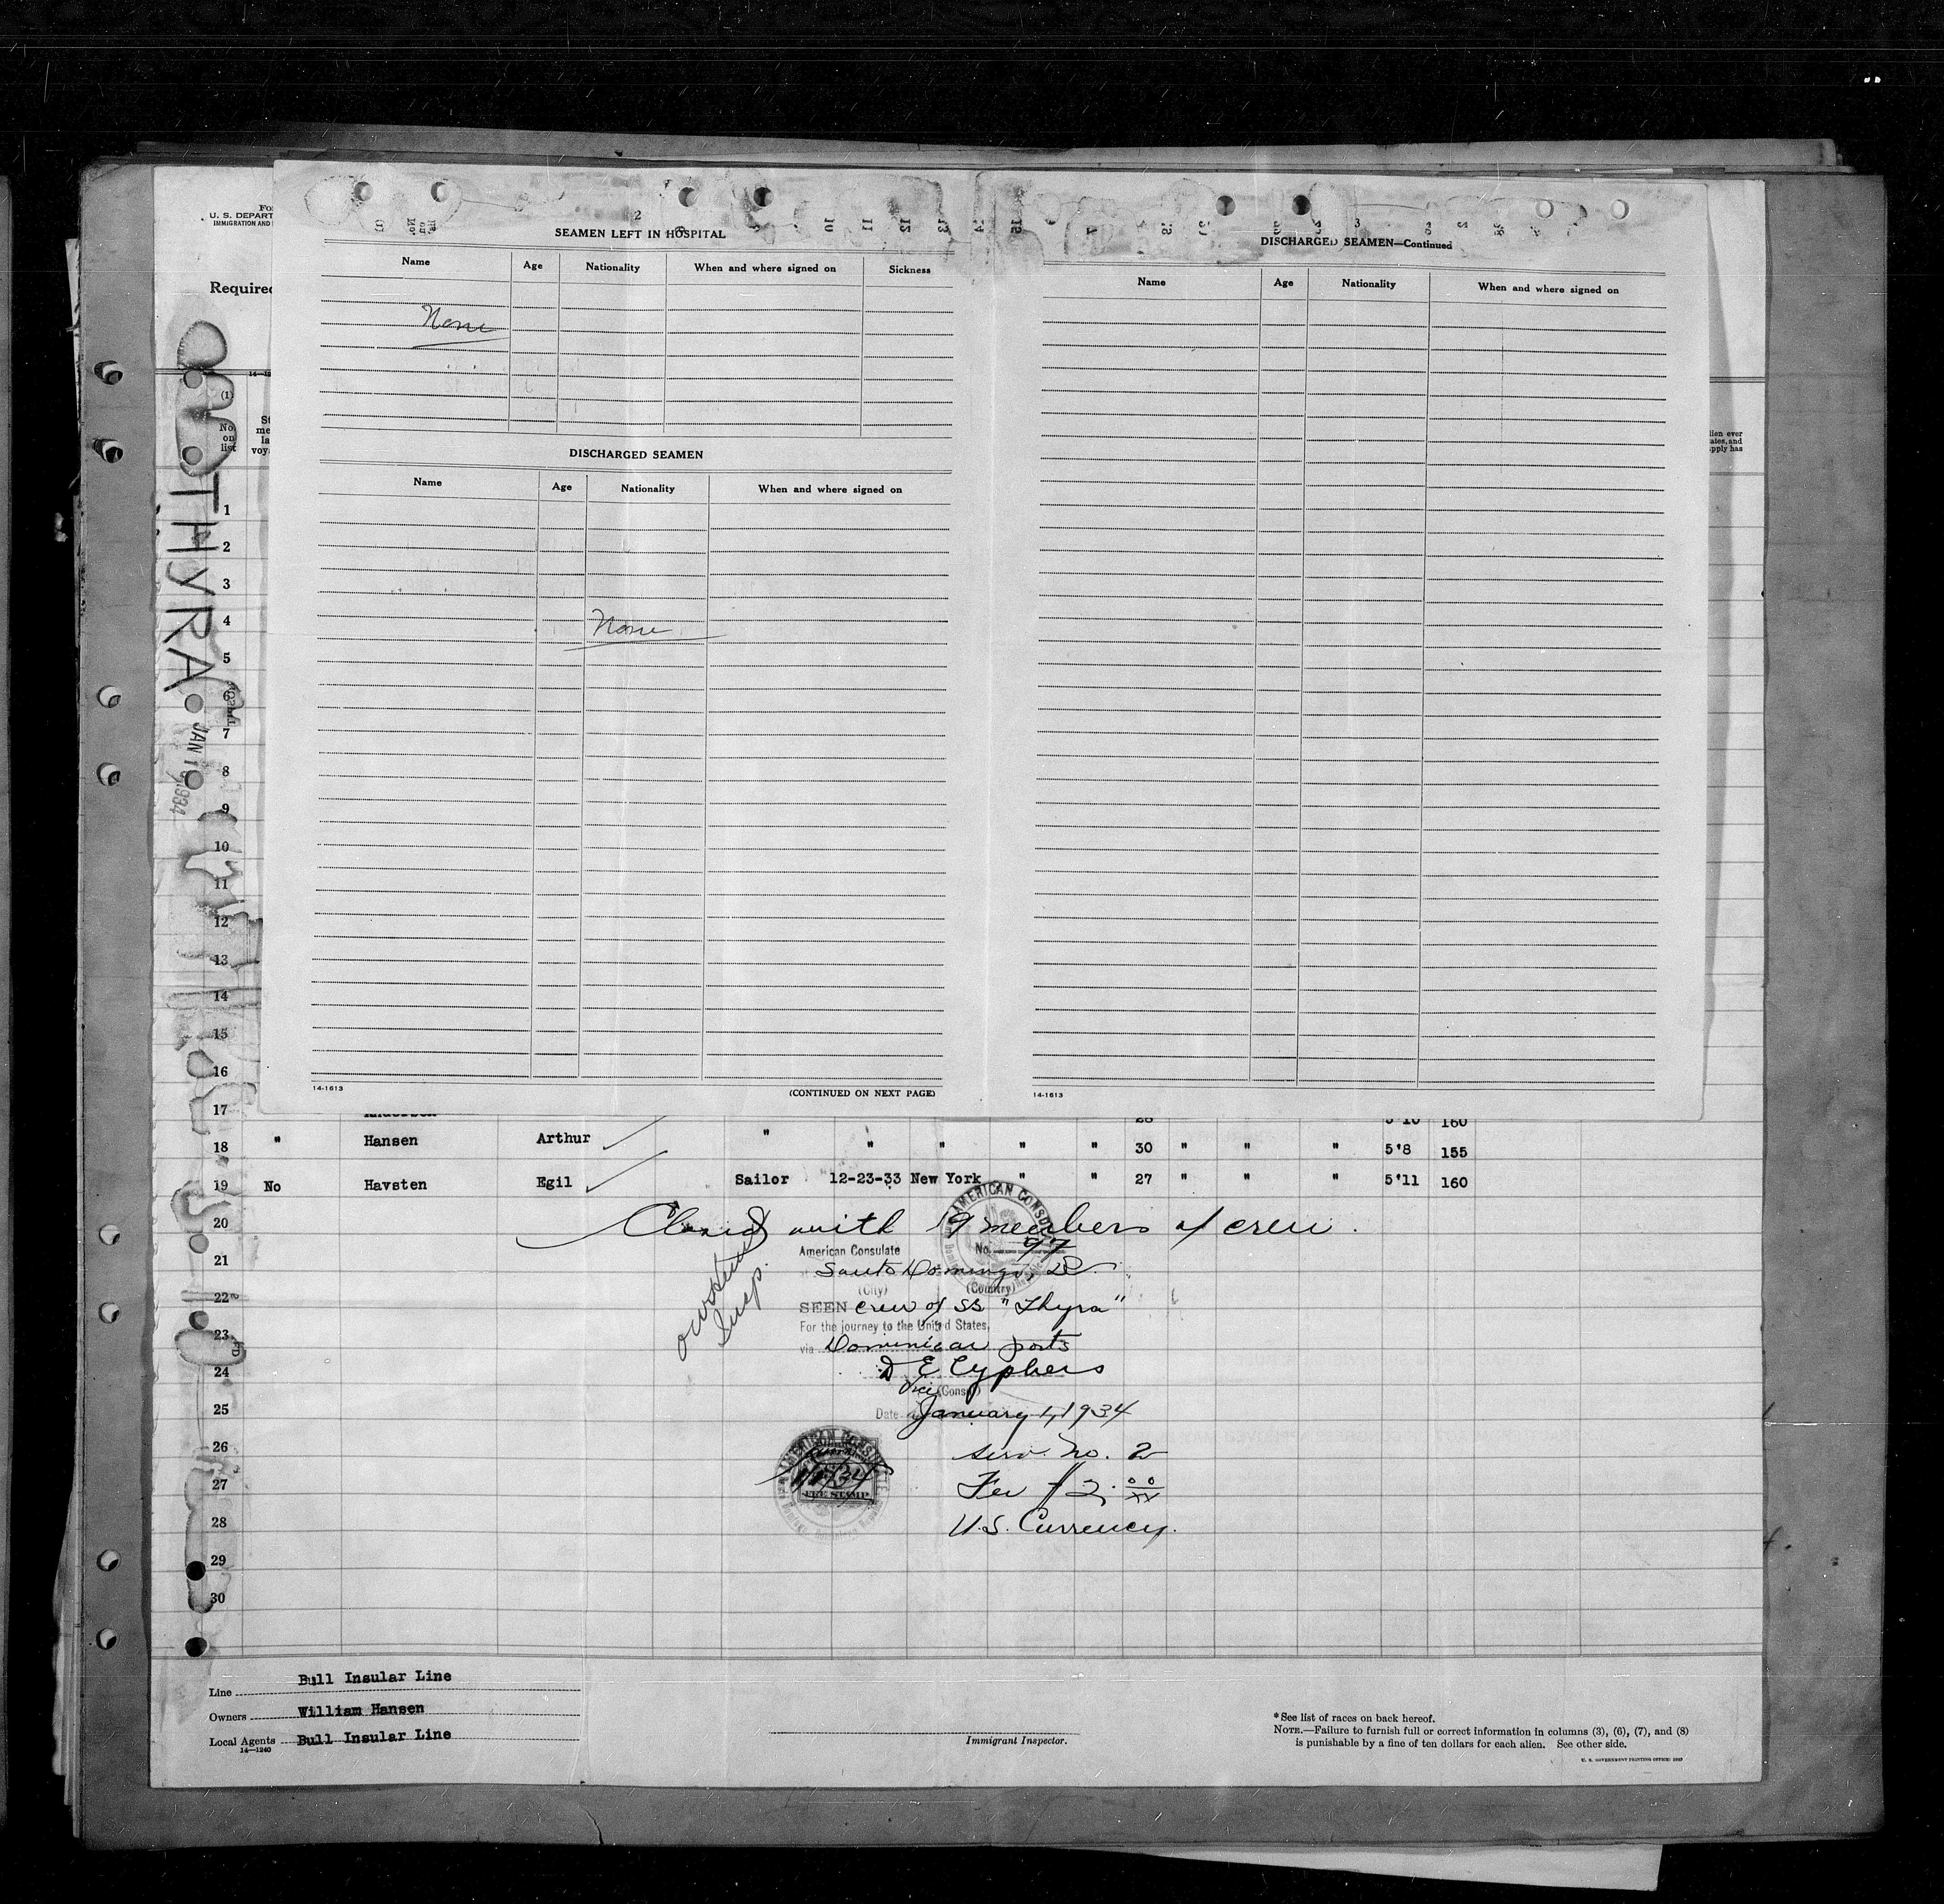 For
U. S. DEPART
IMMIGRATION AND
Required
THYRA
JAN 1 1934
(1)
No
on
list
me
la
voy
2
SEAMEN LEFT IN HOSPITAL
Name Age Nationality When and where signed on Sickness
None
DISCHARGED SEAMEN
Name Age Nationality When and where signed on
None
14-1613 (CONTINUED ON NEXT PAGE)
3
DISCHARGED SEAMEN—Continued
Name Age Nationality When and where signed on
14-1613
lien ever
ates, and
pply has
1
2
3
4
5
6
7
8
9
10
11
12
13
14
15
16
17 Andersen 28 5'10 160
18 " Hansen Arthur " " " " " 30 " " " 5'8 155
19 No Havsten Egil Sailor 12-23-33 New York " " 27 " " " 5'11 160
20 Closed with 19 members of crew.
AMERICAN CONSUL
American Consulate No. 97
21 Santo Domingo, D.R.
(City) (Country)
22 SEEN crew of SS "Thyra"
For the journey to the United States,
23 via Dominican ports
24 D E Cyphers
Vice (Consul)
25 Date January 1, 1934
26 Serv. No. 2
AMERICAN CONSU
27 Fee $2. 00/xx
FEE STAMP
28 U.S. Currency.
29
30
Insp.
Line Bull Insular Line
Owners William Hansen
Local Agents Bull Insular Line
14—1240
Immigrant Inspector.
* See list of races on back hereof.
NOTE.—Failure to furnish full or correct information in columns (3), (6), (7), and (8)
is punishable by a fine of ten dollars for each alien. See other side.
U. S. GOVERNMENT PRINTING OFFICE: